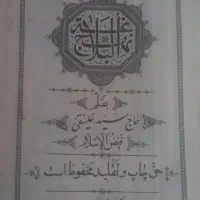 نهج البلاغة
بقلم
حاج سید علینقی
فیض الاسلام
حق چاپ و تقلید محفوظ است